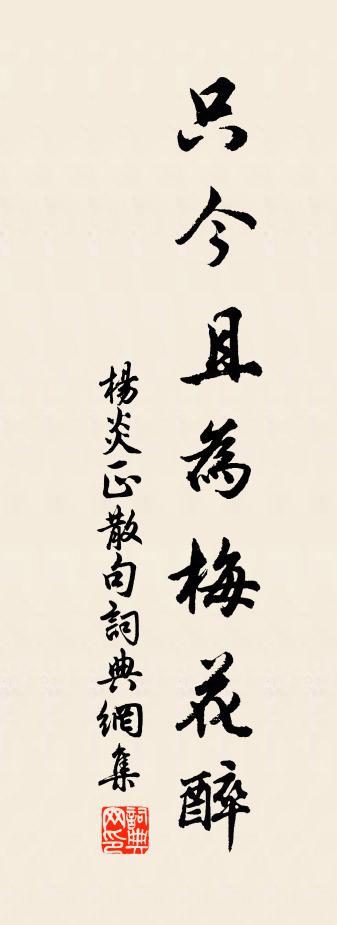 只今且為梅花醉
楊炎正散句詞典網集
詞典網印